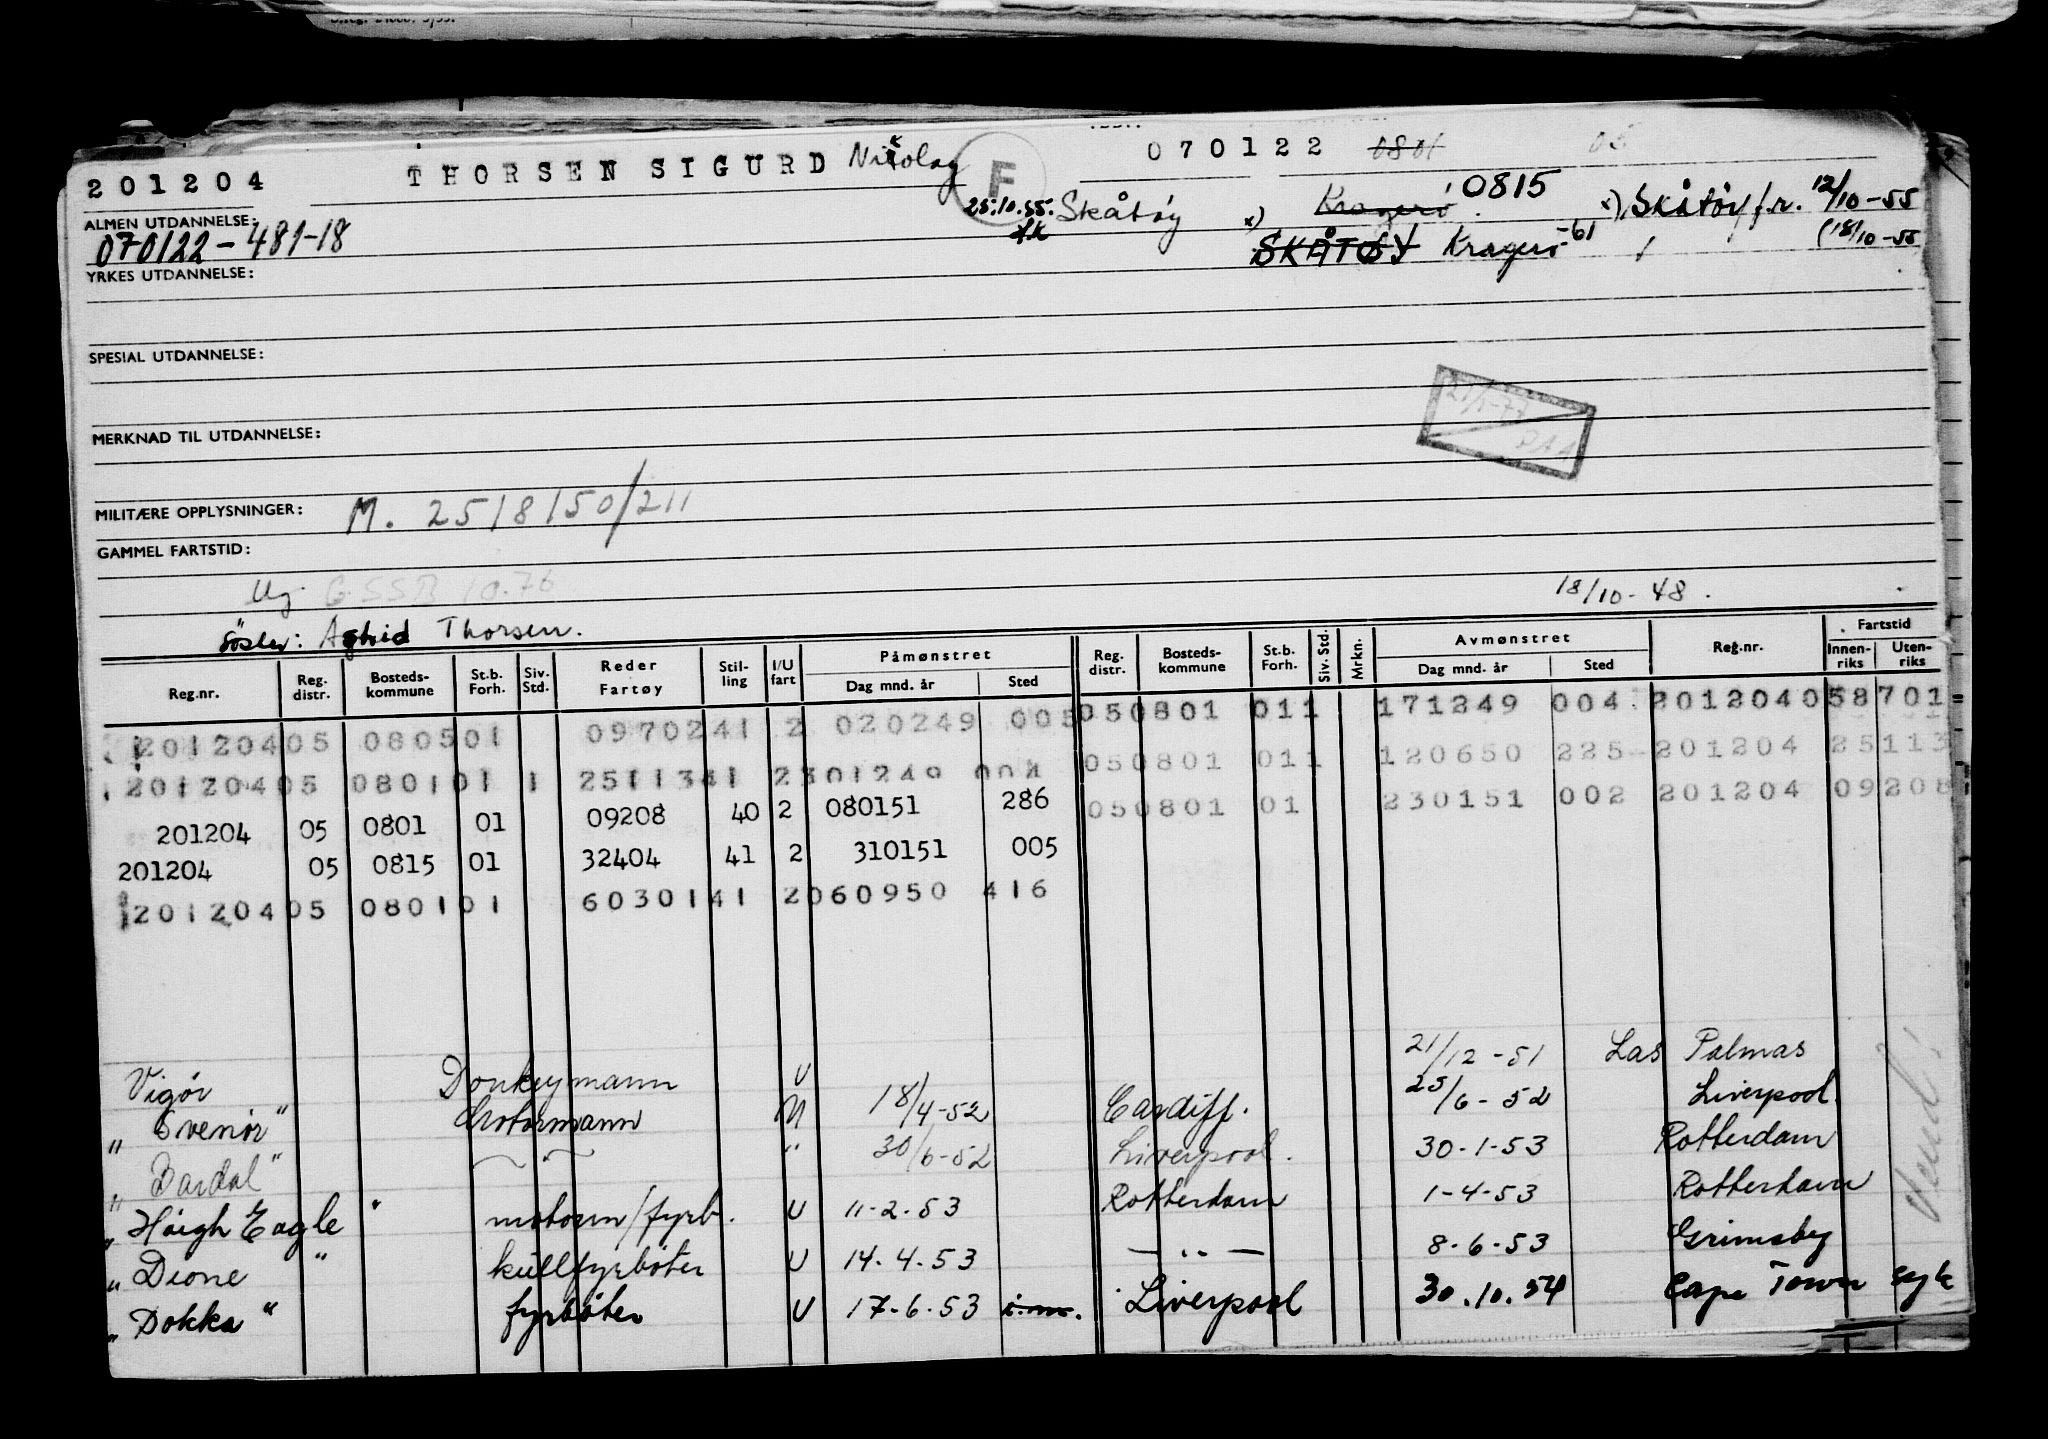 201204 THORSEN SIGURD Nikolay F 070122 0801
ALMEN UTDANNELSE: 25.10.55. Skåtøy x) Kragerø 0815 x) Skåtøy f.r. 12/10-55
070122-481-18 SKÅTØY Kragerø -61 (18/10-55
YRKES UTDANNELSE:
SPESIAL UTDANNELSE:
21/1-77
MERKNAD TIL UTDANNELSE:
MILITÆRE OPPLYSNINGER: M. 2518150/211
GAMMEL FARTSTID:
GSSB 10.76 18/10-48.
Søster: Astrid Thorsen.
Reg.nr. Reg. distr. Bosteds-kommune St.b. Forh. Siv. Std. Reder Fartøy Stil-ling I/U fart Påmønstret Dag mnd. år Sted Reg. distr. Bosteds-kommune St.b. Forh. Siv. Std. Mrkn. Avmønstret Dag mnd. år Sted Reg.nr. Fartstid Innen-riks Uten-riks
20120405 080501 0970241 2 020249 005 050801 011 171249 004 201204058701
20120405 080101 1 2511341 2301249 004 050801 011 120650 225 201204 25113
201204 05 0801 01 09208 40 2 080151 286 050801 01 230151 002 201204 09208
201204 05 0815 01 32404 41 2 310151 005
20120405 080101 6030141 2060950 416
Vigør Donkeymann U 21/12-51 Las Palmas
" Svenør " Motormann U 18/4-52 Cardiff. 25/6-52 Liverpool.
" Bardal " " 30/6-52 Liverpool. 30-1-53 Rotterdam
" Höigh Eagle " motorm/fyrb. U 11-2-53 Rotterdam 1-4-53 Rotterdam
" Dione " kullfyrbøter U 14.4.53 — " — 8-6-53 Grimsby
" Dokka " fyrbøter U 17-6-53 i.m. Liverpool 30.10.54 Cape Town syk
Vend!